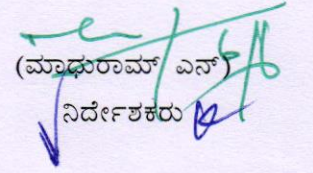 (ಮಾಧುರಾಮ್ ಎನ್)
ನಿರ್ದೇಶಕರು